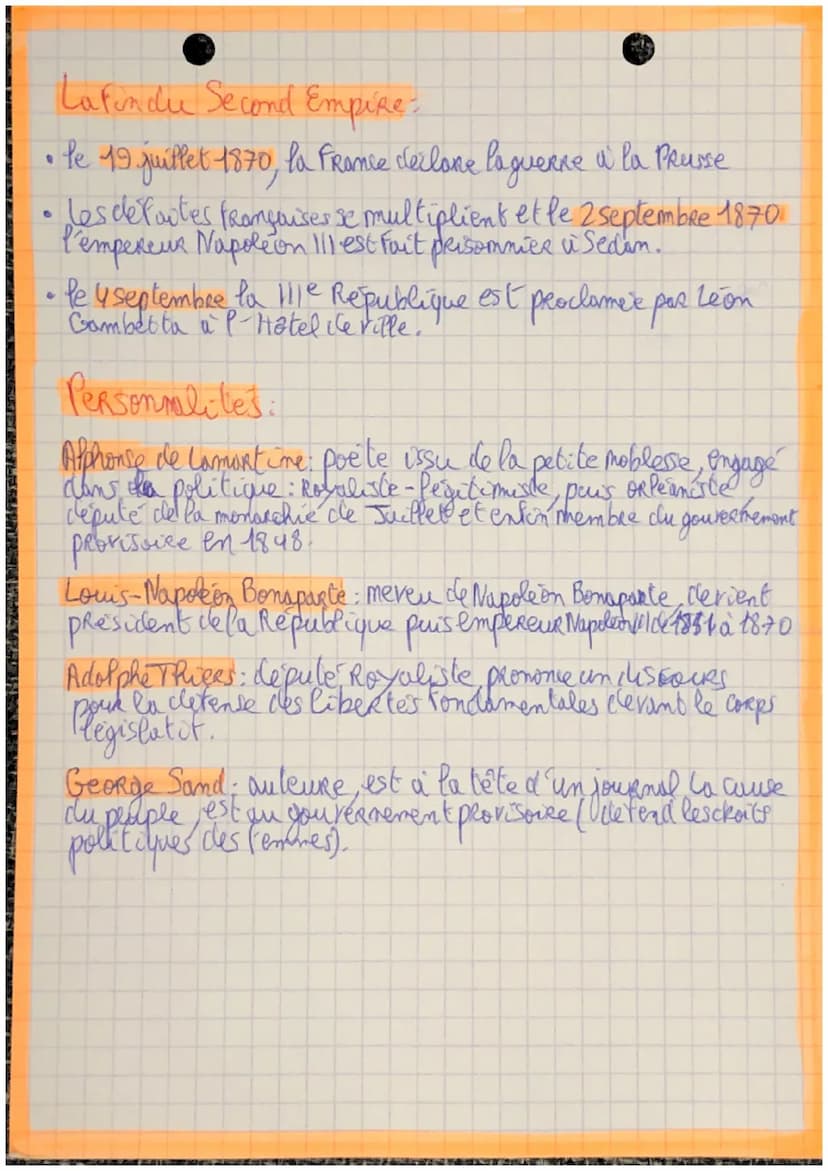 La fin du Second Empire:
• le 19 juillet 1870, la France déclare la guerre à la Prusse
• Les défaites françaises se multiplient et le 2 septembre 1870
l'empereur Napoléon III est fait prisonnier à Sedan.
• le 4 septembre la IIIe République est proclamée par Léon
Gambetta à l'-Hôtel de ville.
Personnalités:
Alphonse de Lamartine: poète issu de la petite noblesse, engagé
dans la politique: Royaliste-légitimiste, puis orléaniste,
député de la monarchie de Juillet et enfin membre du gouvernement
provisoire en 1848.
Louis-Napoléon Bonaparte: neveu de Napoléon Bonaparte, devient
président de la République puis empereur Napoléon III de 1851 à 1870
Adolphe Thiers: député Royaliste prononce un discours
pour la défense des libertés fondamentales devant le corps
législatif.
George Sand: auteure, est à la tête d'un journal La cause
du peuple, est au gouvernement provisoire (défend les droits
politiques des femmes).